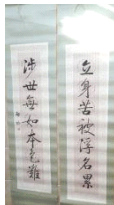 立身苦被浮名累
涉世無如本色難